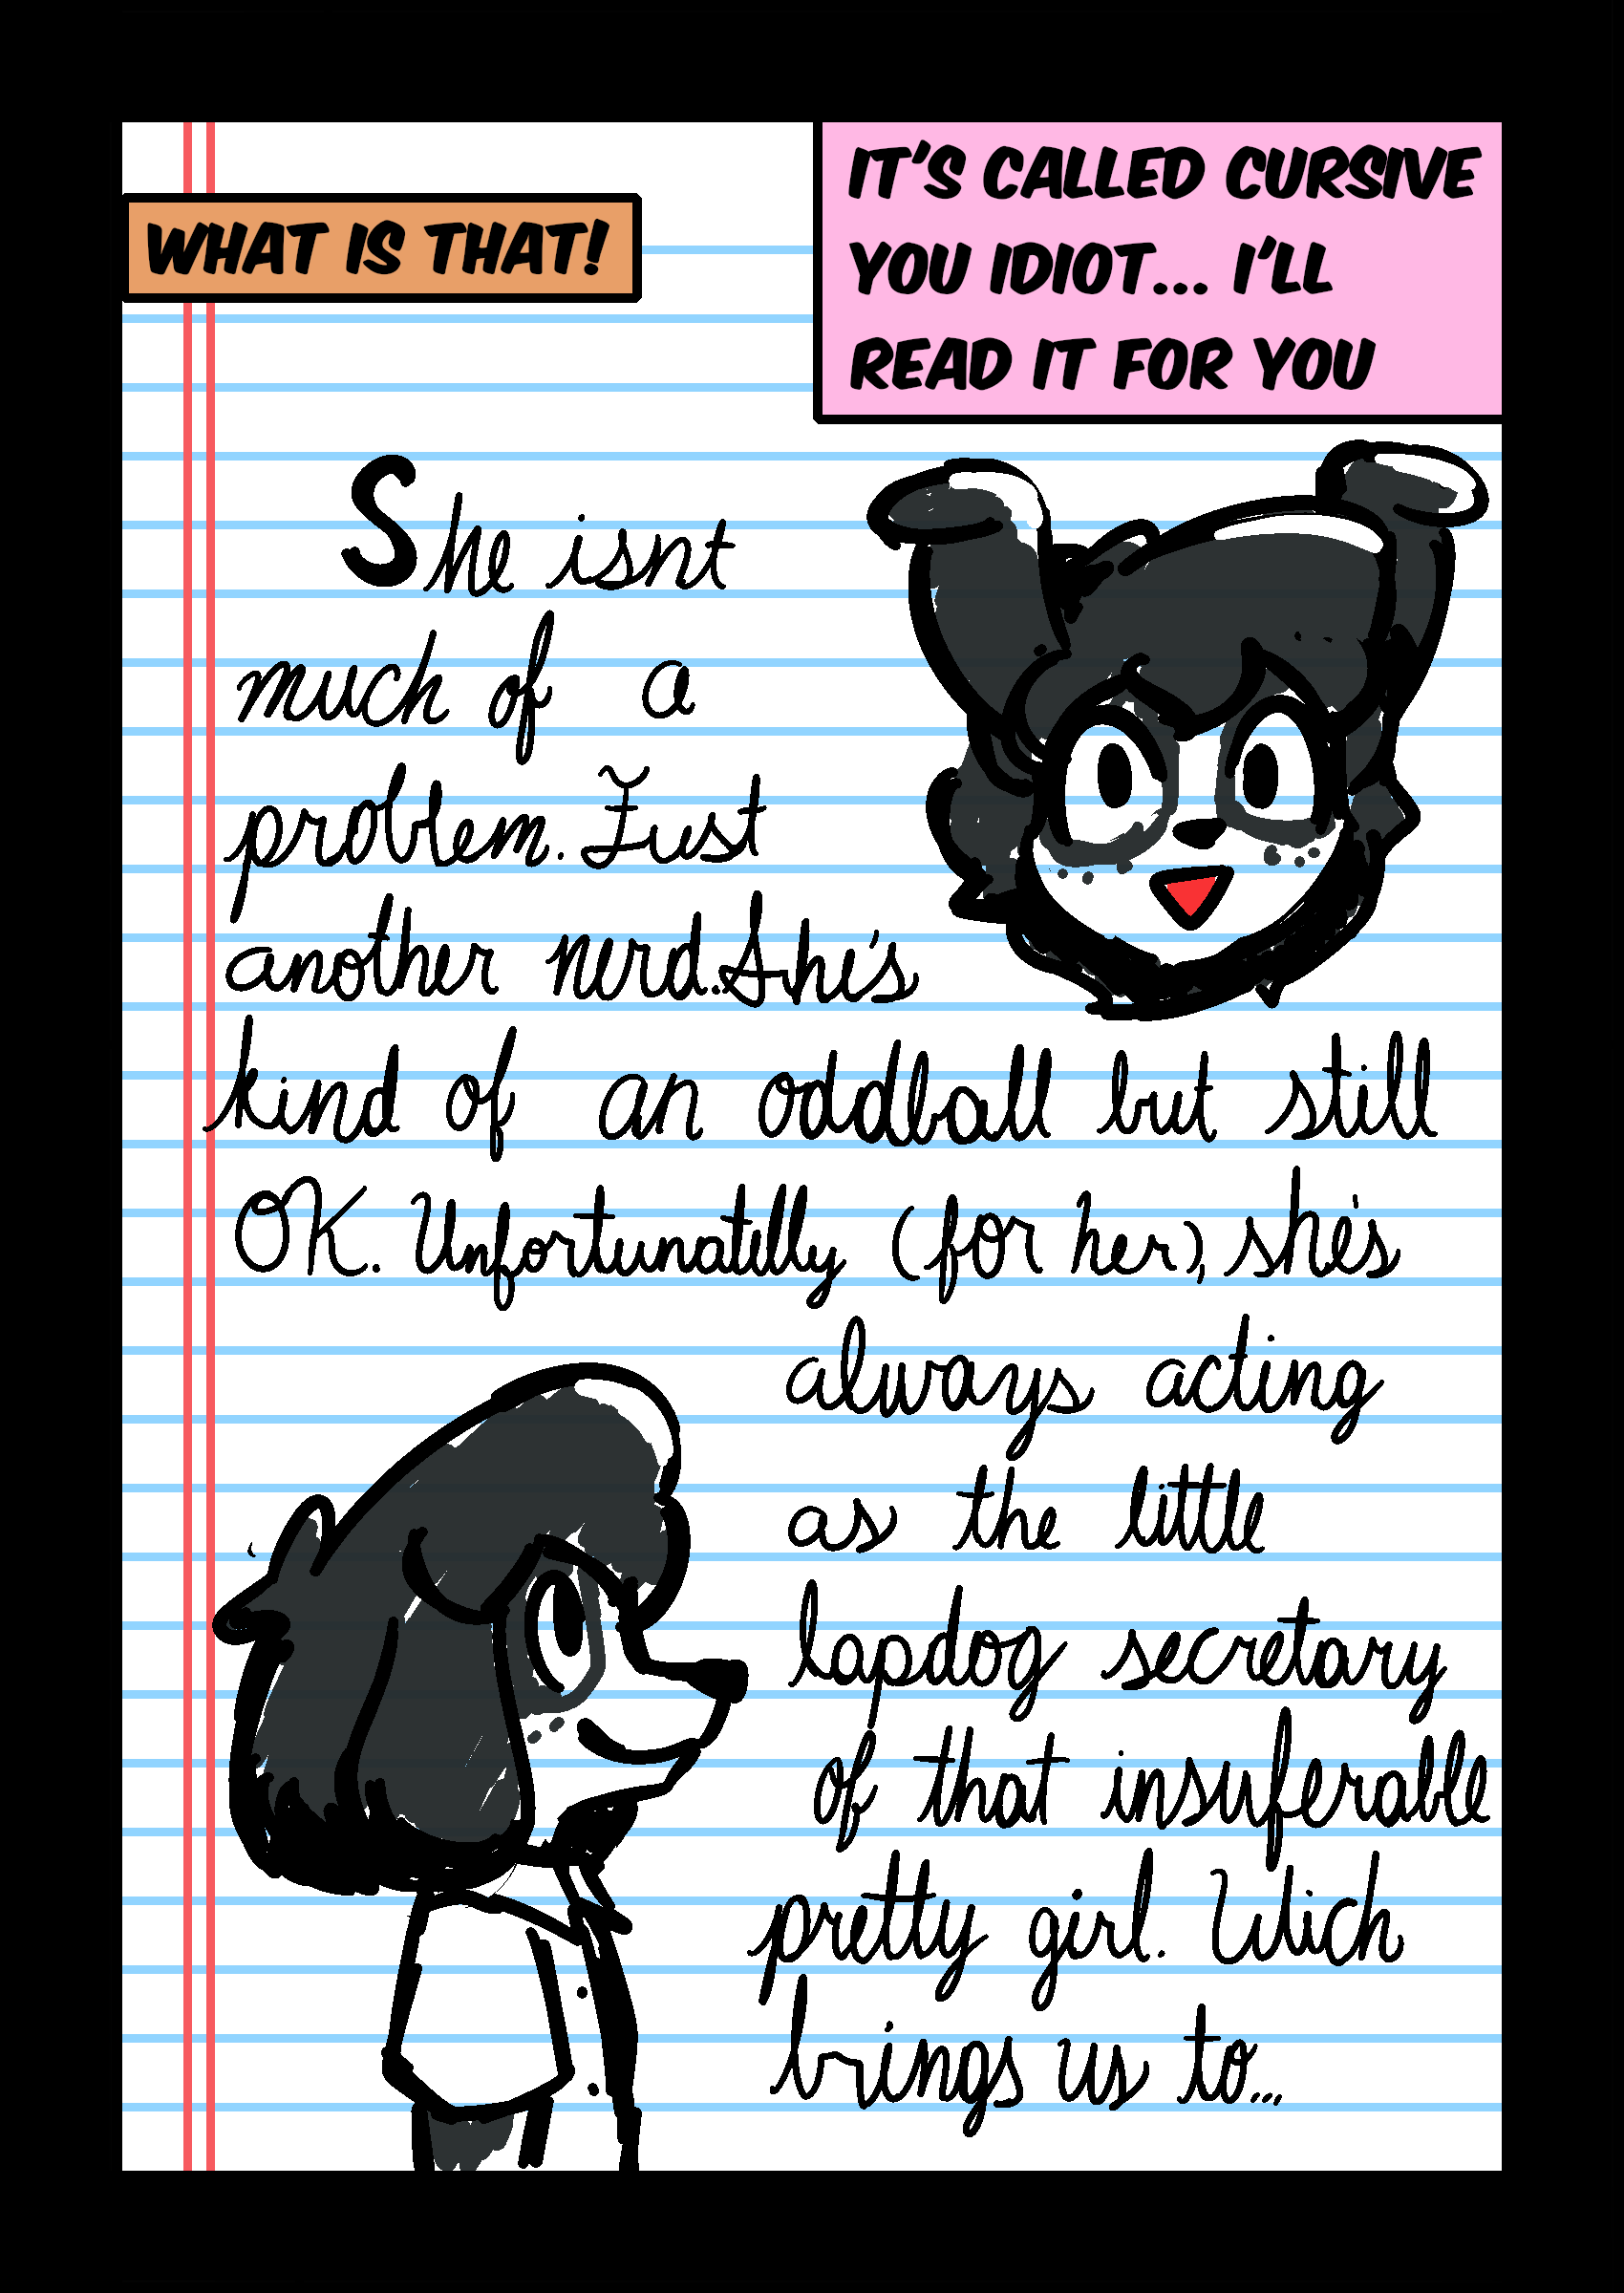 WHAT IS THAT!
IT'S CALLED CURSIVE
YOU IDIOT... I'LL
READ IT FOR YOU
She isnt
much of a
problem. Just
another nerd. She's
kind of an oddball but still
OK. Unfortunatelly (for her), she's
always acting
as the little
lapdog secretary
of that insuferable
pretty girl. Wich
brings us to...